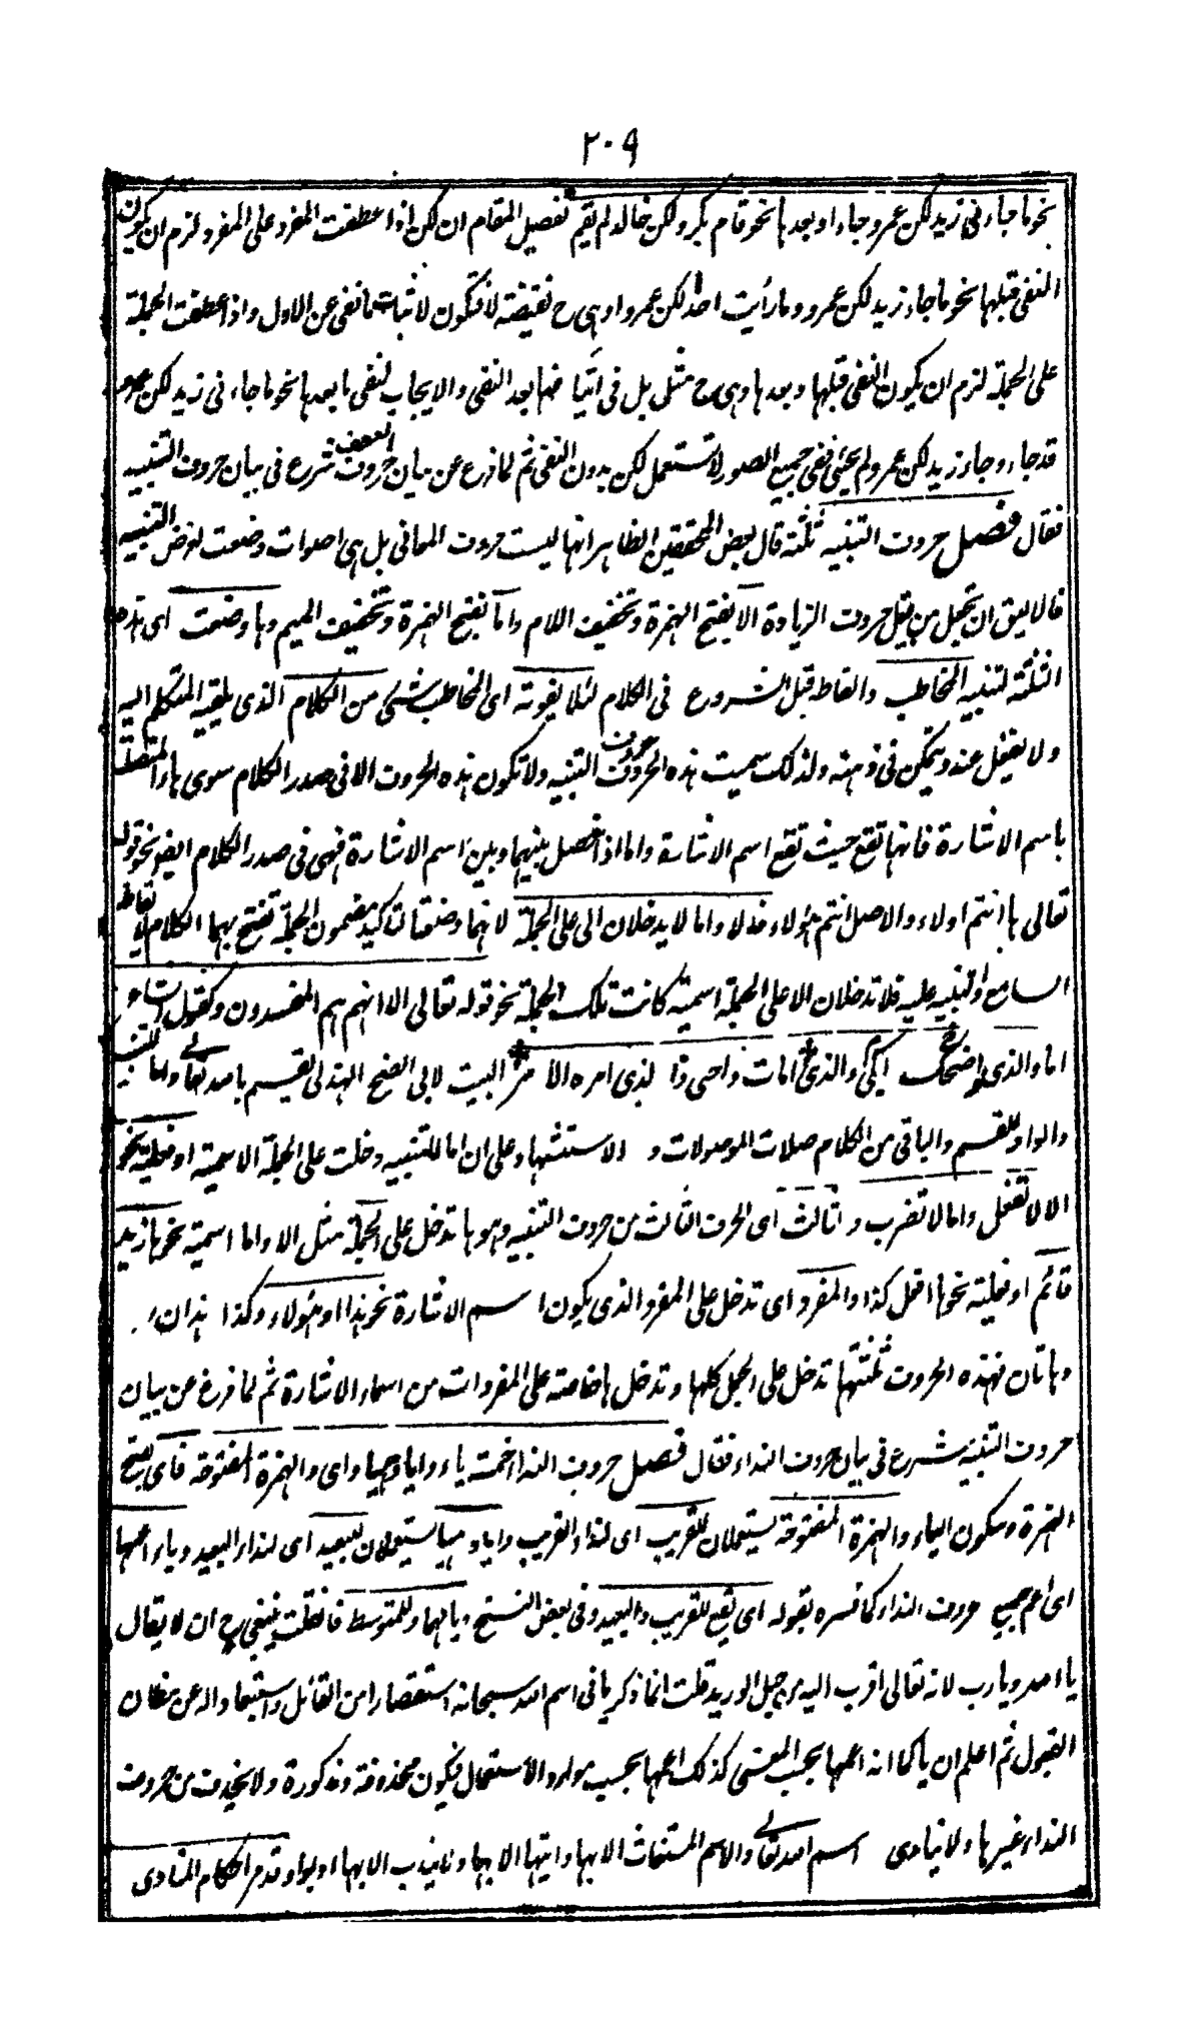 ٢٠٩
نحو ما جاءنى زيد لكن عمرو جاء او بعدها نحو قام بكر ولكن خالد لم يقم تفصيل المقام ان لكن اذا عطفت المفرد على المفرد لزم ان يكون
النفى قبلها نحو ما جاء زيد لكن عمرو وما رأيت احدا لكن عمروا وهى ح نقيضة لا فتكون لاثبات ما نفى عن الاول واذا عطفت الجملة
على الجملة لزم ان يكون النفى قبلها وبعدها وهى ح مثل بل فى اثبات ما بعد النفى والايجاب لنفى ما بعدها نحو ما جاءنى زيد لكن عمرو
قد جاء وجاء زيد لكن عمرو لم يجئ ففى جميع الصور لا تستعمل لكن بدون النفى ثم لما فرغ عن بيان حروف العطف شرع فى بيان حروف التنبيه
فقال فصل حروف التنبيه ثلثة قال بعض المحققين الظاهر انها ليست حروف المعانى بل هى اصوات وضعت لغرض التنبيه
فالاليق ان تجعل من قبيل حروف الزيادة الا بفتح الهمزة وتخفيف اللام واما بفتح الهمزة وتخفيف الميم وها وضعت اى هذه
الثلثة لتنبيه المخاطب وايقاظه قبل الشروع فى الكلام لئلا يفوته اى المخاطب شئ من الكلام الذى يلقيه المتكلم اليه
ولا يغفل عنه ويتمكن فى ذهنه ولذلك سميت هذه الحروف حروف التنبيه ولا تكون هذه الحروف الا فى صدر الكلام سوى ها المتصلة
باسم الاشارة فانها تقع حيث تقع اسم الاشارة واما اذا فصل بينهما وبين اسم الاشارة فهى فى صدر الكلام ايضو نحو قوله
تعالى ها انتم اولاء والاصل انتم هؤلاء فالا واما لا يدخلان الى على الجملة لانهما وضعتا لتاكيد مضمون الجملة تفتح بهما الكلام لايقاظ
السامع والتنبيه عليه فلا تدخلان الا على الجملة اسمية كانت تلك الجملة نحو قوله تعالى الا انهم هم المفسدون وكقول الشاعر
اما والذى ابكى واضحك والذى امات واحى والذى امره الامر البيت لابى الصخر الهذلى يقسم بالله تعالى واما للتنبيه
والواو للقسم والباقى من الكلام صلات الموصولات و الاستشهاد على ان اما للتنبيه دخلت على الجملة الاسمية او فعلية نحو
الا لا تفعل واما لا تضرب و الثالث اى الحرف الثالث من حروف التنبيه وهو ها تدخل على الجملة مثل الا واما اسمية نحو ها زيد
قائم او فعلية نحو ها افعل كذا والمفرد اى تدخل على المفرد الذى يكون اسم الاشارة نحو هذا او هؤلاء وكذا هذان
وهاتان فهذه الحروف ثلثتها تدخل على الجمل كلها وتدخل ها خاصة على المفردات من اسماء الاشارة ثم لما فرغ عن بيان
حروف التنبيه شرع فى بيان حروف النداء فقال فصل حروف النداء خمسة ياء وايا وهيا واى والهمزة المفتوحة فاى بفتح
الهمزة وسكون الياء والهمزة المفتوحة يستعملان للقريب اى لنداء القريب وايا وهيا يستعملان للبعيد اى لنداء البعيد ويا اعمها
اى اعم جميع حروف النداء كما فسره بقوله اى يقع للقريب والبعيد وفى بعض النسخ ويا لهما وللمتوسط فان قلت ينبغى ح ان لا يقال
يا الله ويا رب لانه تعالى اقرب اليه من حبل الوريد قلت انما ذكر يا فى اسم الله سبحانه استقصارا من القائل واستبعادا له عن مظان
القبول ثم اعلم ان يا كما انه اعمها بحسب المعنى كذلك اعمها بحسب موارد الاستعمال فيكون محذوفة ومذكورة ولا يحذف من حروف
النداء غيرها ولا ينادى اسم الله تعالى والاسم المستغاث الا بها وايتها الا بها ولا يندب الا بها او بوا وقد مر احكام المنادى